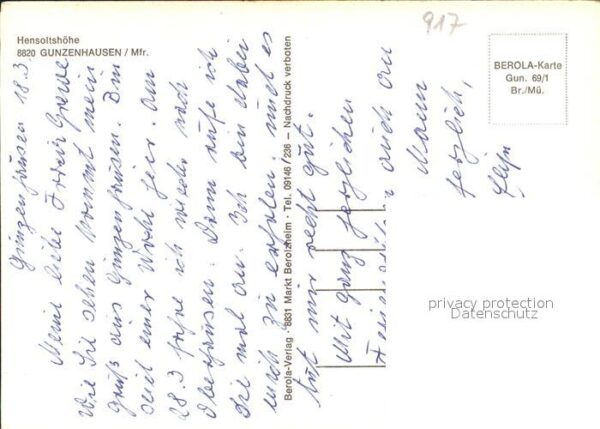 Hensoltshöhe
8820 GUNZENHAUSEN / Mfr.
917
BEROLA-Karte
Gun. 69/1
Br./Mü.
Berola-Verlag · 8831 Markt Berolzheim · Tel. 09146/236 – Nachdruck verboten
Gunzenhausen 18.3
Meine liebe Frau
Wie Sie sehen kommt mein
Gruß aus Gunzenhausen. Bin
seit einer Woche hier. Am
28.3 fahre ich wieder nach
Oberhausen. Dann rufe ich
Sie mal an. Ich bin dabei
mich zu erholen. und es
tut mir recht gut.
Mit ganz herzlichen
auch an
Mann
herzlich,
privacy protection
Datenschutz